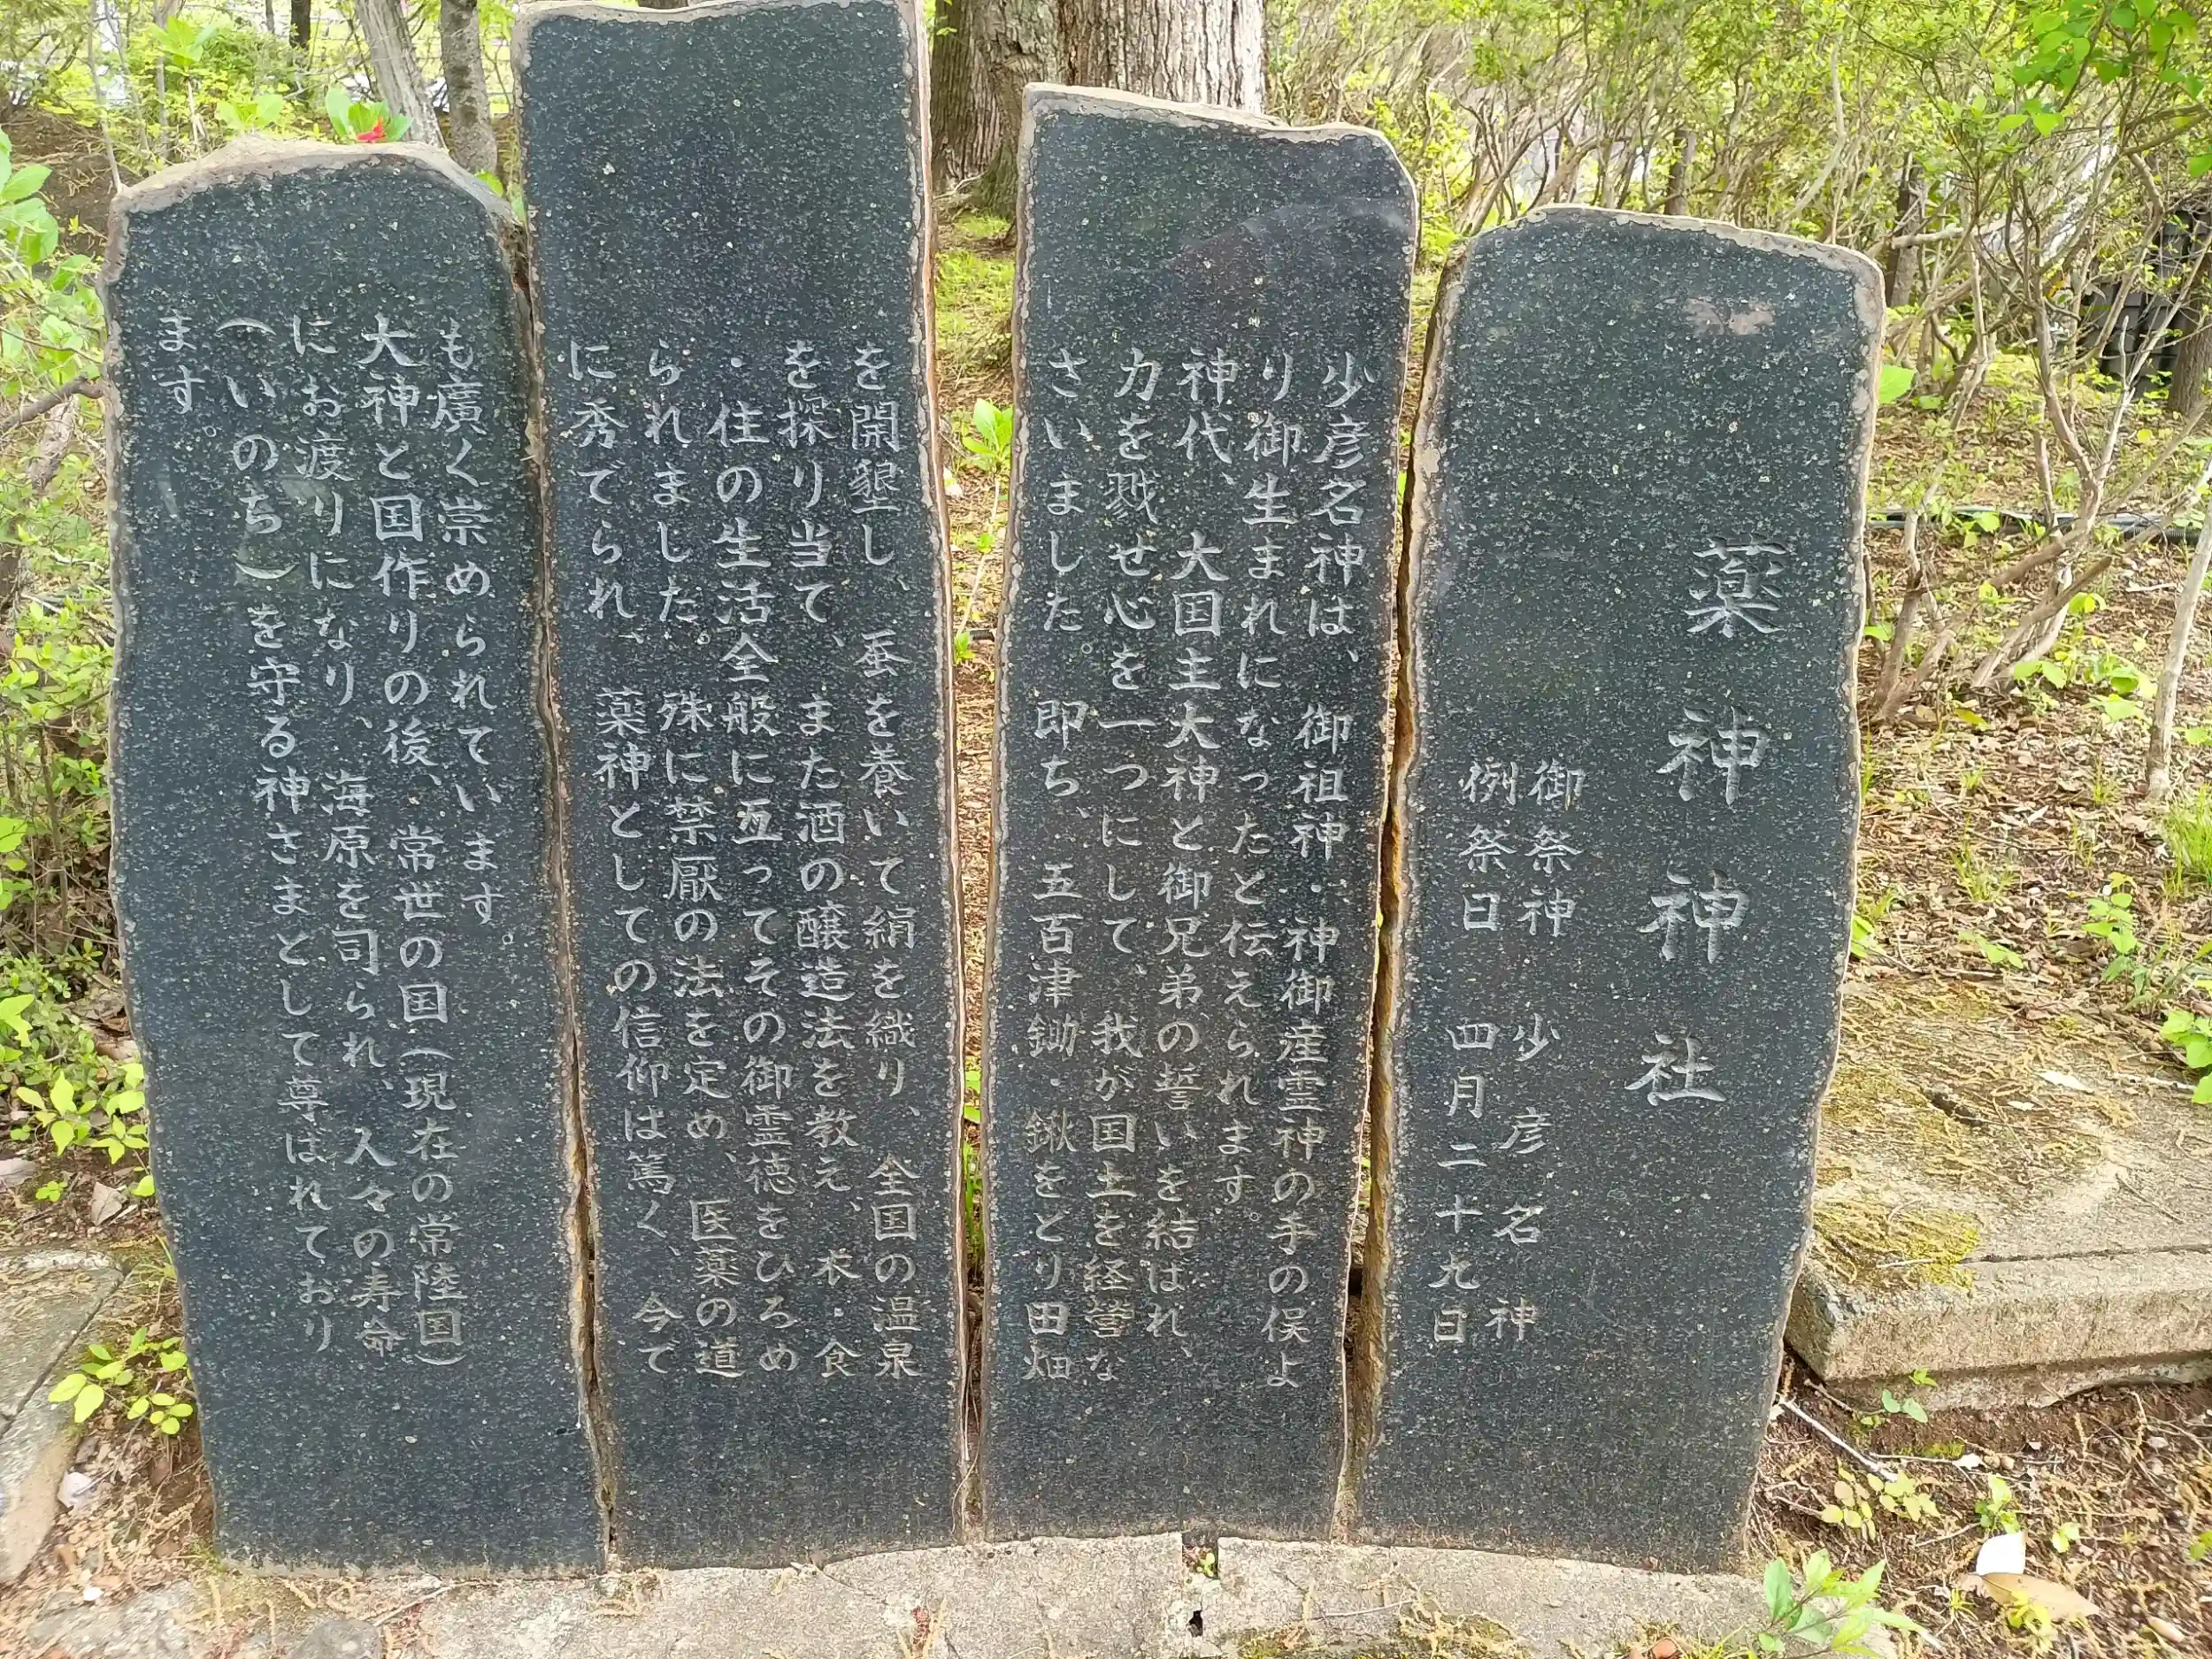 薬神神社
御祭神 少彦名神
例祭日 四月二十九日
少彦名神は、御祖神・神御産霊神の手の俣よ
り御生まれになったと伝えられます。
神代、大国主大神と御兄弟の誓いを結ばれ、
力を戮せ心を一つにして、我が国土を経営な
さいました。即ち、五百津鋤・鍬をとり田畑
を開墾し、蚕を養いて絹を織り、全国の温泉
を探り当て、また酒の醸造法を教え、衣・食
・住の生活全般に亙ってその御霊徳をひろめ
られました。殊に禁厭の法を定め、医薬の道
に秀でられ、薬神としての信仰は篤く、今て
も廣く崇められています。
大神と国作りの後、常世の国(現在の常陸国)
にお渡りになり、海原を司られ、人々の寿命
(いのち)を守る神さまとして尊ばれており
ます。